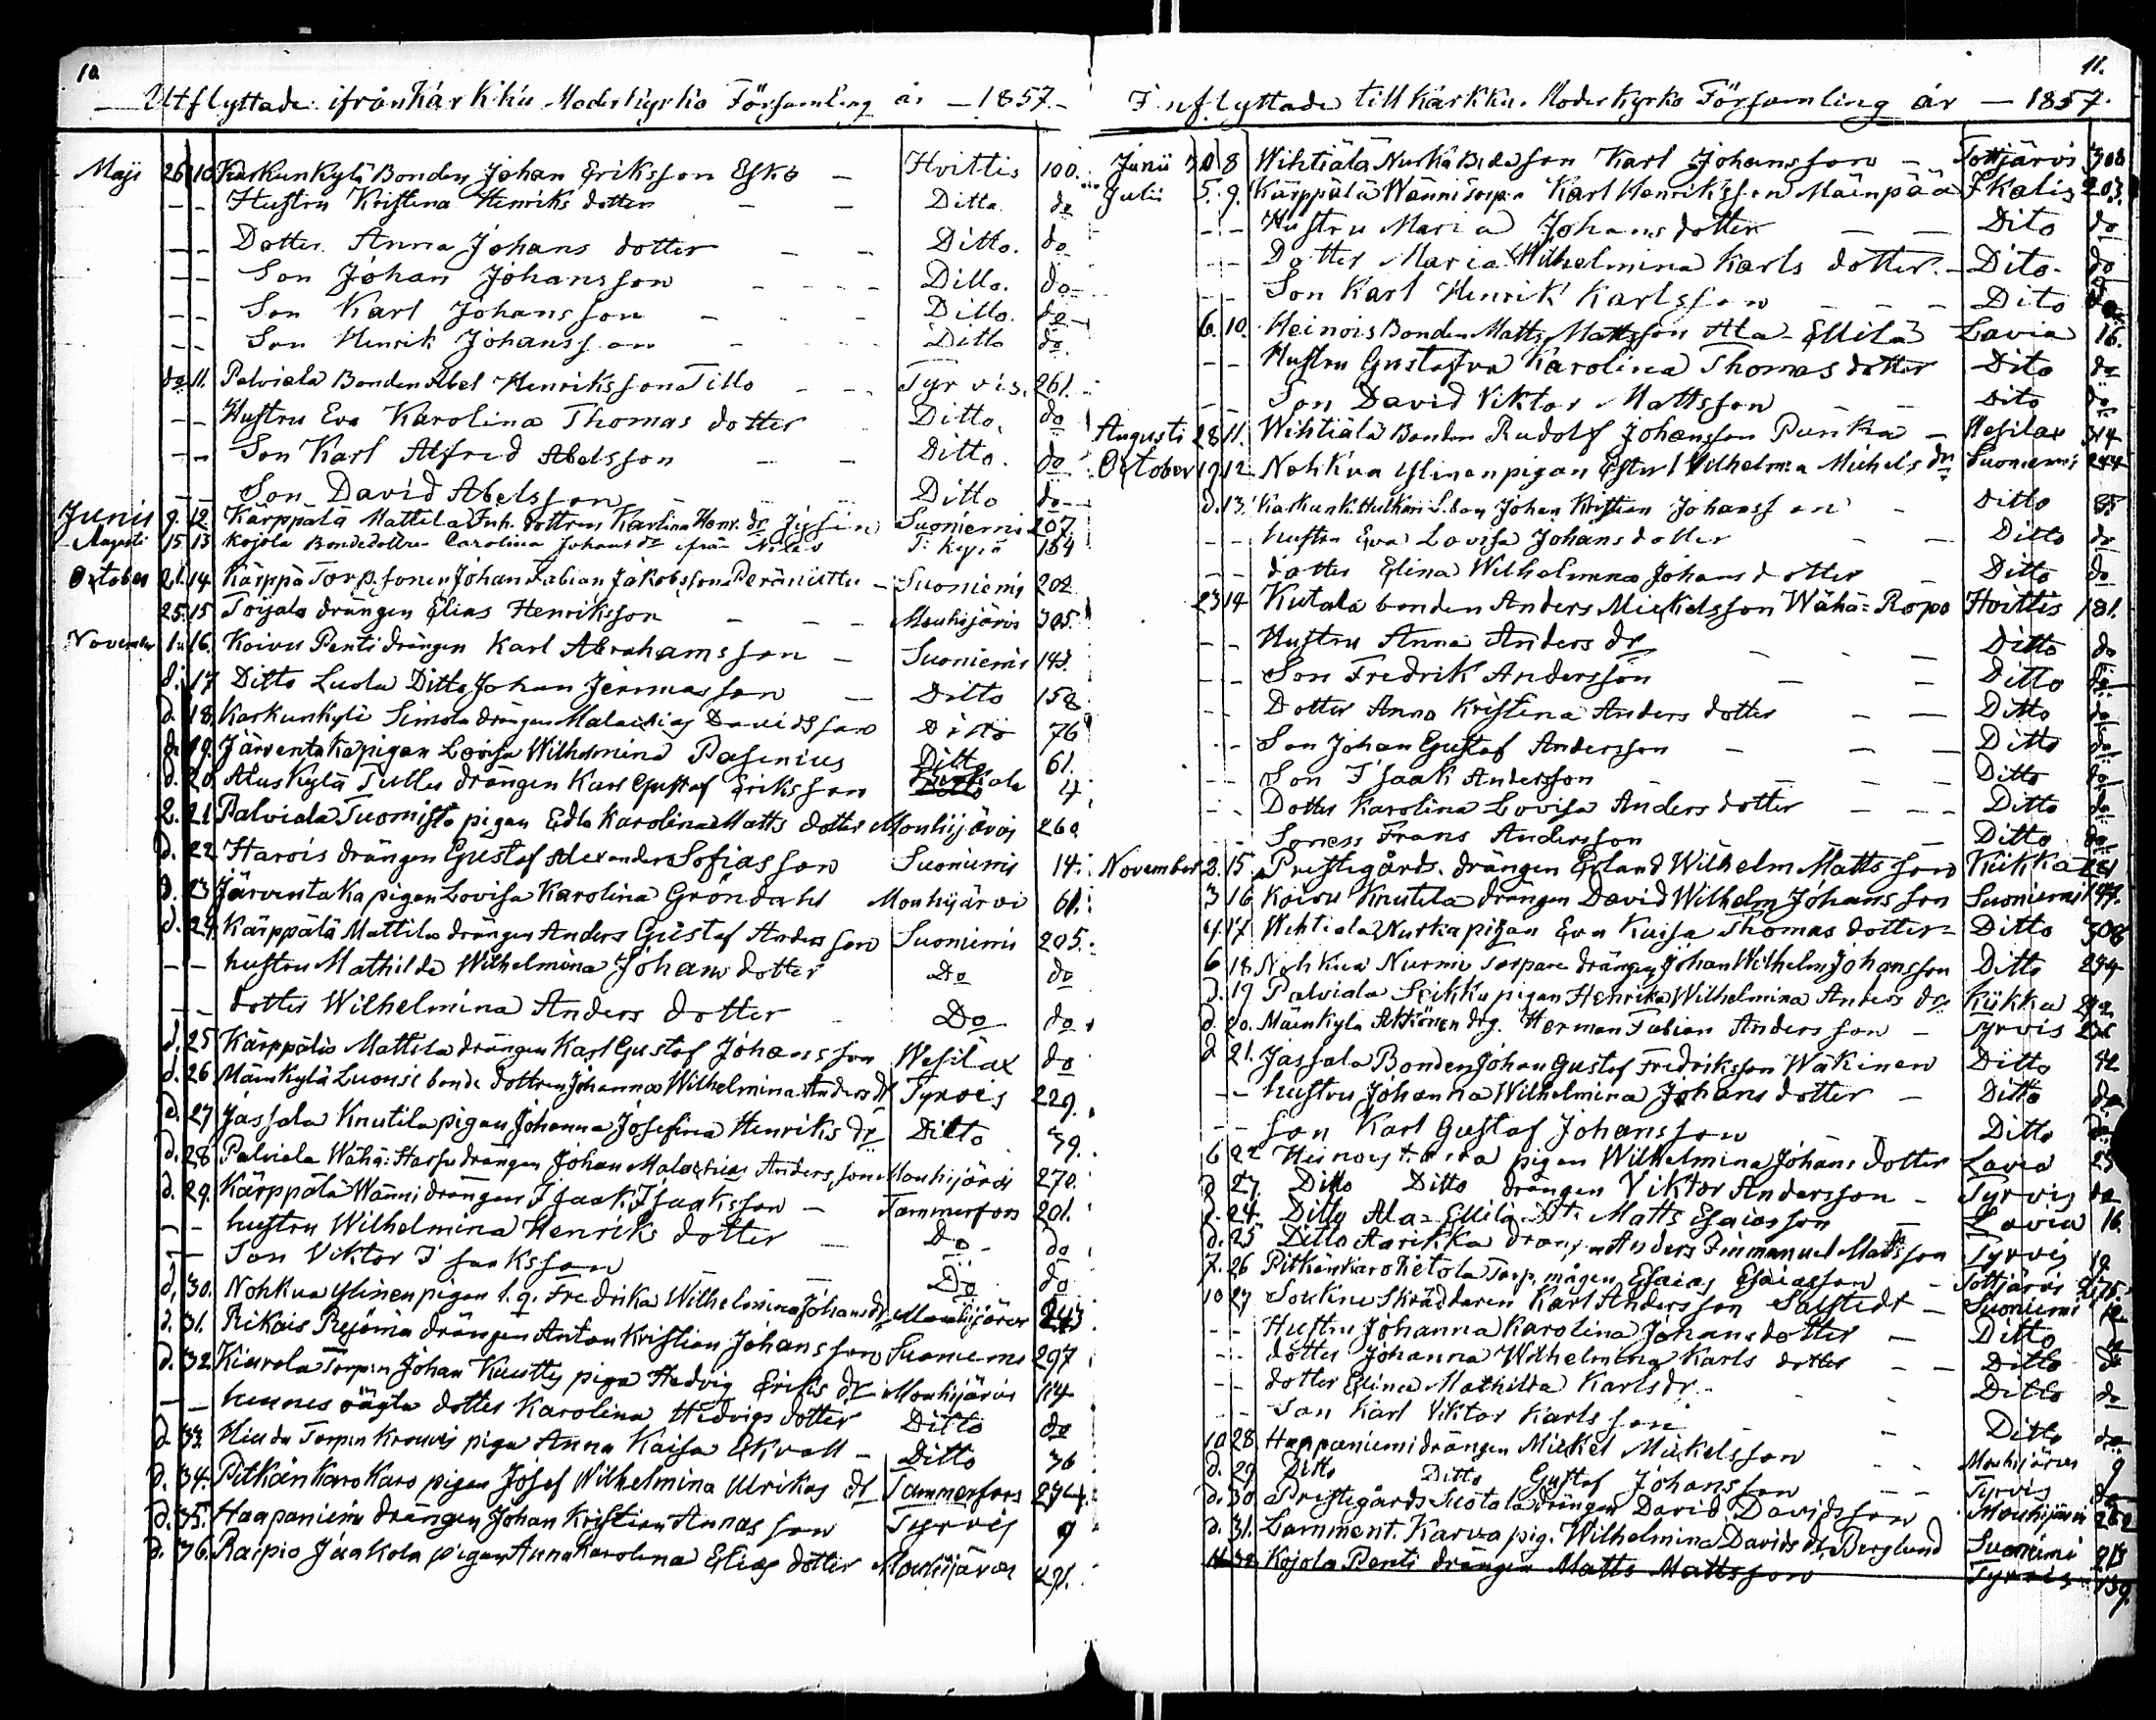 10.
Utflyttade ifrån Karkku Moderkyrko Församling år 1857.
Maji 26 10 Karkunkylä Bonden Johan Eriksson Esko – Hvittis 100.
– – Hustru Kristina Henriks dotter – – Ditto do
– – Dotter Anna Johans dotter – – Ditto. do
– – Son Johan Johansson – – Ditto. do
– – Son Karl Johansson – – Ditto. do
– – Son Henrik Johansson – – Ditto do
do 11. Palviala Bonden Abel Henriksson Tillo – – Tyrvis. 261.
– – Hustru Eva Karolina Thomas dotter Ditto. do
– – Son Karl Alfred Abelsson – – Ditto. do
– – Son David Abelsson – – Ditto do
Junii 9. 12. Kärppälä Mattila Inh. dottren Karolina Henr. dr Suoniemi 207.
Augusti 15 13 Kojola Bondedottren Carolina Johans dr ifrån 154
October 21. 14 Kärppä Torp. sonen Johan Fabian Jakobsson Peräniittu – Suoniemi 202
25. 15 Toijala drängen Elias Henriksson – – Mouhijärvi 305.
November 1. 16. Koivu Penti drängen Karl Abrahamsson – Suoniemi 143.
d. 17 Ditto Luola Ditto Johan Jeremiasson – Ditto 158
d. 18. Karkunkylä Simola drängen Malachias Davidsson Ditto 76
d. 19. Järventaka pigan Lovisa Wilhelmina Pasenius Ditto 61.
d. 20. Aluskylä Tulles drängen Karl Gustaf Eriksson 4.
2. 21. Palviala Tuomisto pigan Edla Karolina Matts dotter Mouhijärvi 260
d. 22 Harois drängen Gustaf Alexander Sofiasson Suoniemi 14.
d. 23 Järventaka pigan Lovisa Karolina Gröndahl Mouhijärvi 61.
d. 24. Kärppälä Mattila drängen Anders Gustaf Andersson Suoniemi 205.
– – hustru Mathilda Wilhelmina Johans dotter Do do
– – dotter Wilhelmina Anders dotter Do do
d. 25 Kärppälä Mattila drängen Karl Gustaf Johansson Wesilax do
d. 26 Mäenkylä Luonsi bonde dottren Johanna Wilhelmina Anders dr Tyrvis 229.
d. 27 Jassala Knutila pigan Johanna Josefina Henriks dr Ditto 39.
d. 28 Palviala Wähä-Hassu drängen Johan Malachias Andersson Mouhijärvi 270.
d. 29. Kärppälä Wänni drängen Isaak Isaksson – Tammerfors 201.
– – hustru Wilhelmina Henriks dotter – Do do
– – Son Viktor Isaaksson – Do do
d. 30. Nohkua Ylinen pigan l. q. Fredrika Wilhelmina Johans dr Mouhijärvi 243
d. 31. Rikais Rejömä drängen Anton Kristian Johansson Suoniemi 297
d. 32 Kiurala Torp.n Johan Kustly piga Hedvig Eriks dr Mouhijärvi 114
– – hennes oägta dotter Karolina Hedvigs dotter Ditto do
d. 33. Torpen piga Anna Kaisa Ekvall – Ditto 36
d. 34. Pitkänkaro Karo pigan Josef Wilhelmina Ulrikas dr Tammerfors 274.
d. 35. Haapaniemi drängen Johan Kristian Annasson Tyrvis 9
d. 36. Raipio Jaakola pigan Anna Karolina Elias dotter Mouhijärvi 291.
11.
Inflyttade till Karkku Moderkyrko Församling år – 1857.
Junii 30 8 Wihtiälä Nurka Bdeson Karl Johansson – Tottijärvi 308
Julii 5. 9. Kärppälä Wänni torp.n Karl Henriksson Mäenpää Ikalis 203.
– – Hustru Maria Johans dotter – – Dito do
– – Dotter Maria Wilhelmina Karls dotter. – Dito. do
– – Son Karl Henrik Karlsson – – Dito do
6. 10. Heinois Bonden Matts Mattsson Ala-Ellilä Lavia 16.
– – Hustru Gustafva Karolina Thomas dotter Dito do
– – Son David Viktor Mattsson – – Dito do
Augusti 28 11. Wihtiälä Bonden Rudolf Johansson Punka – Wesilax 314
October 19 12. Nohkua Ylinen pigan Ester Wilhelmina Michels dr Suoniemi 244
d. 13. Karkunk. Hulkari Johan Kristian Johansson – Ditto 85
– – hustru Eva Lovisa Johans dotter – – Ditto do
– – dotter Elina Wilhelmina Johans dotter – Ditto do
23 14 Kutala bonden Anders Mickelsson Wähä-Ropo Hvittis 181.
– – Hustru Anna Anders dr – – Ditto do
– – Son Fredrik Andersson – – Ditto do
– – Dotter Anna Kristina Anders dotter – – Ditto do
– – Son Johan Gustaf Andersson – – Ditto do
– – Son Isaak Andersson – – Ditto do
– – Dotter Karolina Lovisa Anders dotter – – Ditto do
– – Sonen Frans Andersson – Ditto do
November 3. 15. Prestegårds drängen Erland Wilhelm Mattsson Kiikka 281
3 16 Koivu Knutila drängen David Wilhelm Johansson Suoniemi 147.
4. 17 Wihtiälä Nurka pigan Eva Kaisa Thomas dotter – Ditto 308
6 18. Nohkua Nurmi Torpare drängen Johan Wilhelm Johansson Ditto 239
d. 19 Palviala Seikku pigan Henrika Wilhelmina Anders dr Kiikka 292
d. 20. Mäenkylä drg. Herman Fabian Andersson – Tyrvis
d. 21. Jassala Bonden Johan Gustaf Fredriksson Wäkinen Ditto 42
– – hustru Johanna Wilhelmina Johans dotter – Ditto do
– – son Karl Gustaf Johansson – Ditto do
6 22 Heinois pigan Wilhelmina Johans dotter Lavia 23
d 23. Ditto Ditto drängen Viktor Andersson – Tyrvis do
d. 24. Ditto Ala-Ellilä Dt. Matts Esaiasson – Lavia 16.
d. 25 Ditto Aarikka drängen Anders Immanuel Mattsson Tyrvis 19.
7. 26 Pitkänkaro Hietola Torp. mågen Esaias Esaiasson – Tottijärvi 275.
10 27 Soukine Skräddaren Karl Andersson Salstedt – Suoniemi 12
– – Hustru Johanna Karolina Johans dotter – Ditto do
– – dotter Johanna Wilhelmina Karls dotter – – Ditto do
– – dotter Elina Mathilda Karls dr – Ditto do
– – Son Karl Viktor Karlsson – Ditto do
10 28. Haapaniemi drängen Mickel Mickelsson – – Mouhijärvi 9
d. 29 Ditto Ditto Gustaf Johansson – – Tyrvis do
d. 30 Prestegårds Suotala drängen David Davidsson Mouhijärvi 282
d. 31. Lamment. Karva pig. Wilhelmina Davids dr Berglund Suoniemi 213
11 32 Kojola Penti drängen Matts Mattsson Tyrvis 139.